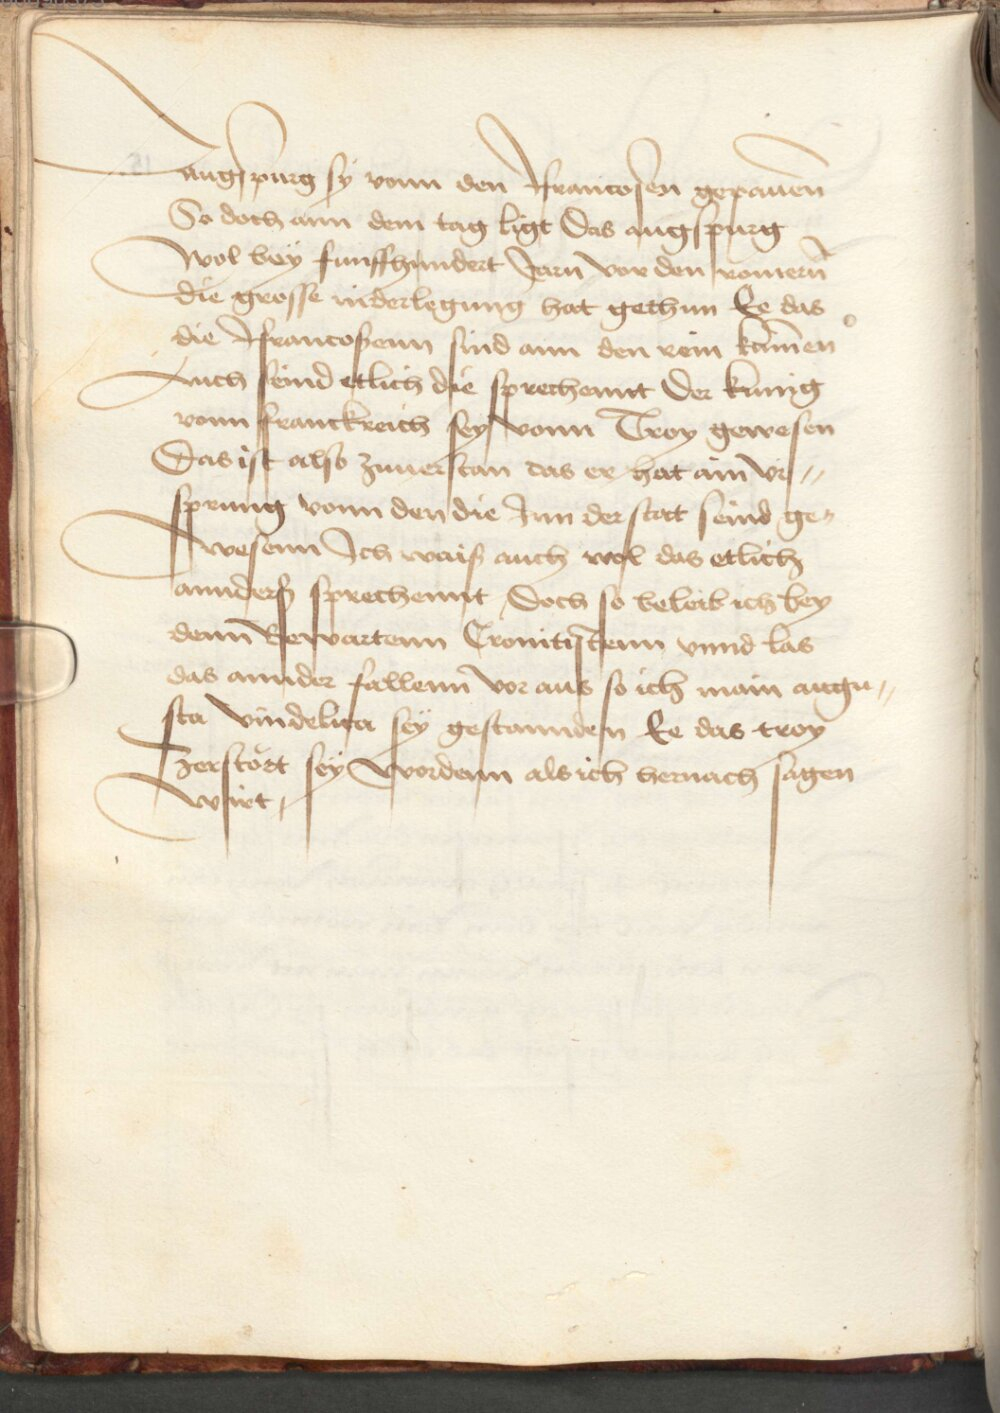 augspurg sy vonn den Ffrancosen gepauen
So doch ann dem tag ligt Das augspurg
Wol bey funffhundert Jarn vor den romern
die grosse niderlegung hat gethun Ee das
die Ffrancosenn sind ann den rein kumen
Auch seind etlich die sprechennt Der kunig
vonn franckreich sey vonn Troy gewesen
Das ist also zuuerstan das er hat ain vr„
sprung vonn den die Inn der stat seind ge„
wesenn Ich wais auch wol das etlich
annders sprechennt Doch so beleib ich bey
denn bewartenn Cronikistenn vnnd las
das annder fallenn vor aus so ich main augu„
sta vindelica sey gestannden Ee das troy
zerstört sey wordenn als ich hernach sagen
wirt